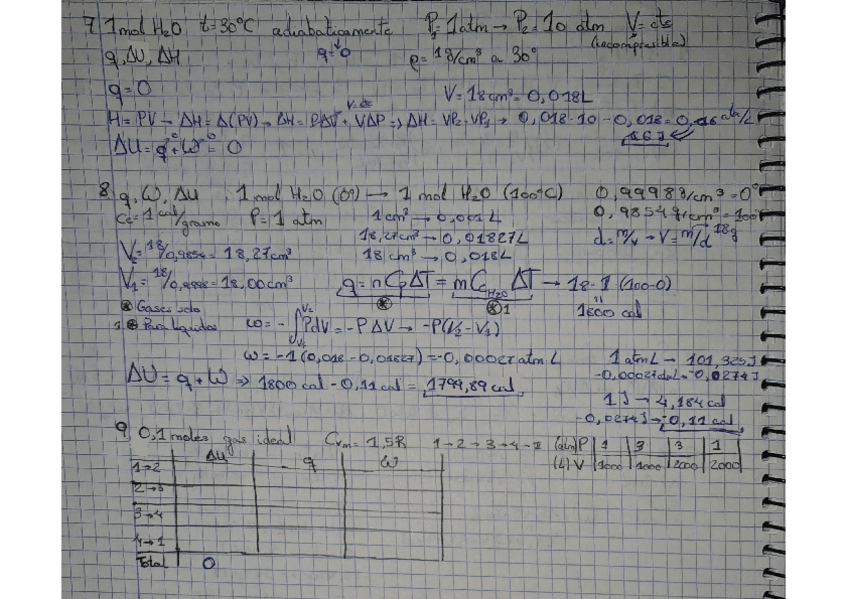 7 1 mol H₂O t=30°C adiabaticamente P₁=1atm → P₂=10 atm V=cte
q=0 (incompresible)
q, ΔU, ΔH ρ=1g/cm³ a 30°
q=0 V=18cm³=0,018L
V=cte
H=PV → ΔH=Δ(PV) → ΔH=PΔV+VΔP => ΔH=VP₂-VP₁ → 0,018·10-0,018=0,16 atm/L
ΔU=q+W=0 16J
8 q, W, ΔU, 1 mol H₂O (0°) → 1 mol H₂O (100°C) 0,9998g/cm³=0°
Ce=1 cal/gramo P=1 atm 1cm³ → 0,001L 0,9854g/cm³=100°
V₂=18/0,9854=18,27cm³ 18,27cm³ → 0,01827L d=m/v → V=m/d 18g
V₁=18/0,9998=18,00cm³ 18cm³ → 0,018L
q=nCpΔT=mCe H₂O ΔT → 18·1(100-0)
⊛ Gases solo ⊛ ⊛1 1800 cal
1 ⊛ Para líquidos ω=-∫PdV=-PΔV → -P(V₂-V₁)
ω=-1(0,018-0,01827)=-0,00027atm L 1 atmL → 101,325J
-0,00027atmL=-0,0274J
ΔU=q+W => 1800cal-0,11cal=1799,89cal 1J → 4,184cal
-0,0274J → -0,11cal
9 0,1 moles gas ideal Cvm=1,5R 1-2→3→4-1 (atm)P 1 3 3 1
(L)V 1000 1000 2000 2000
ΔU q ω
1→2
2→3
3→4
4→1
Total 0